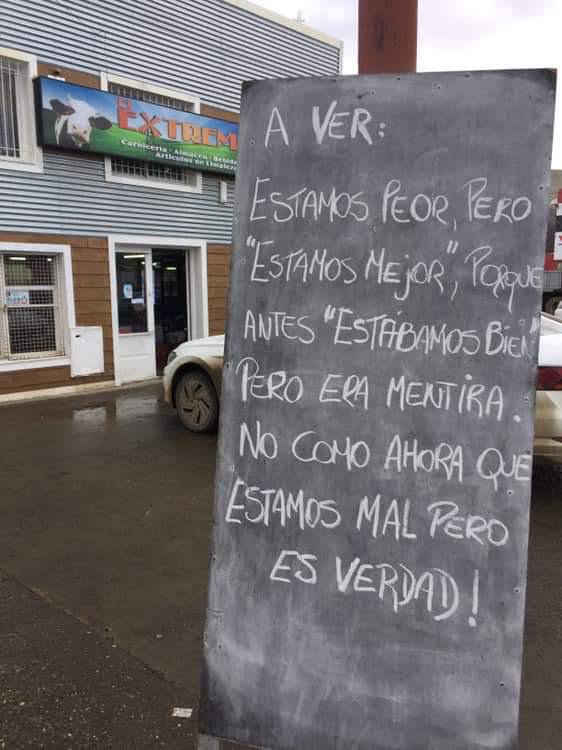 EL
EXTREM
Carnicería - Almacén - Bebida
Artículos de Limpieza
A VER:
ESTAMOS PEOR, PERO
"ESTAMOS MEJOR", PORQUE
ANTES "ESTÁBAMOS BIEN"
PERO ERA MENTIRA.
NO COMO AHORA QUE
ESTAMOS MAL PERO
ES VERDAD!